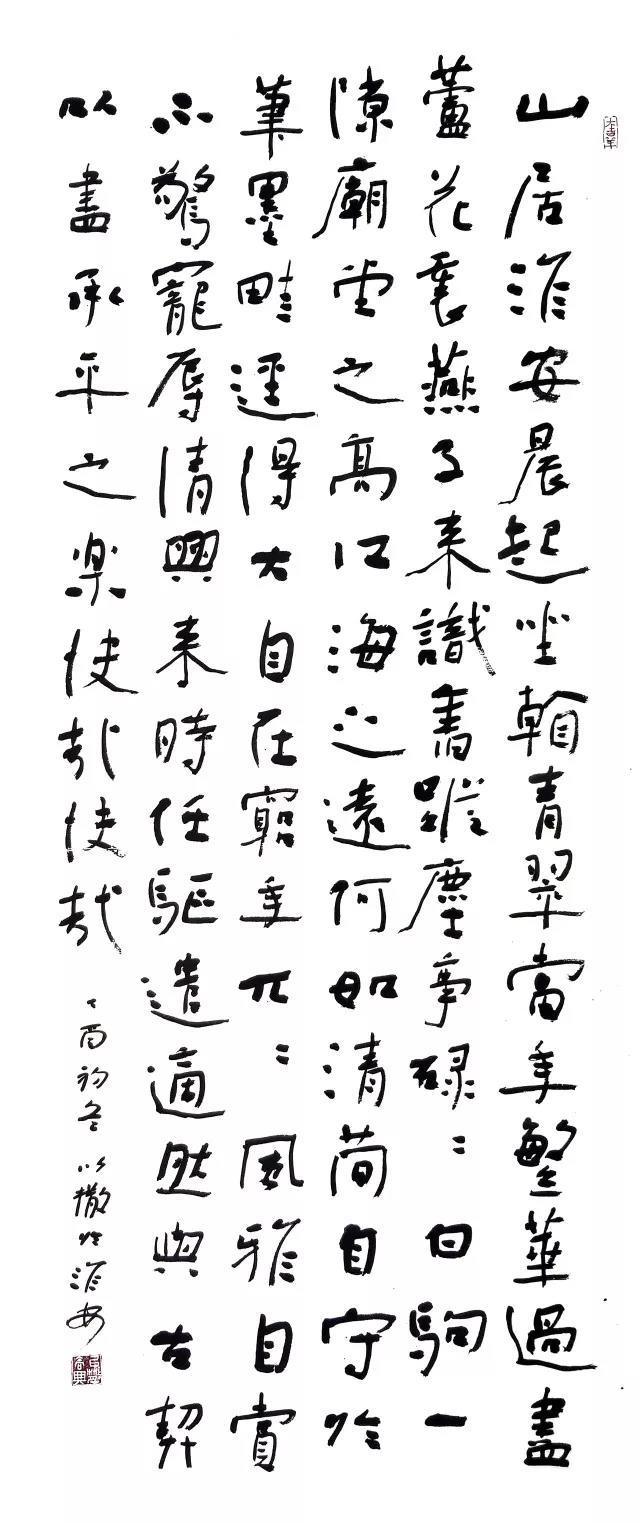 山居淮安晨起坐青翠當年繁華過盡
蘆花裏燕子來識舊蹤塵事碌々白駒一
隙廟堂之高江海之遠何如清简自守於
筆墨畦逕得大自在窮年兀々風雅自賞
不驚寵辱清興来時任驅遣適然與古契
以盡承平之楽快哉快哉
丁酉初冬以撒於淮安